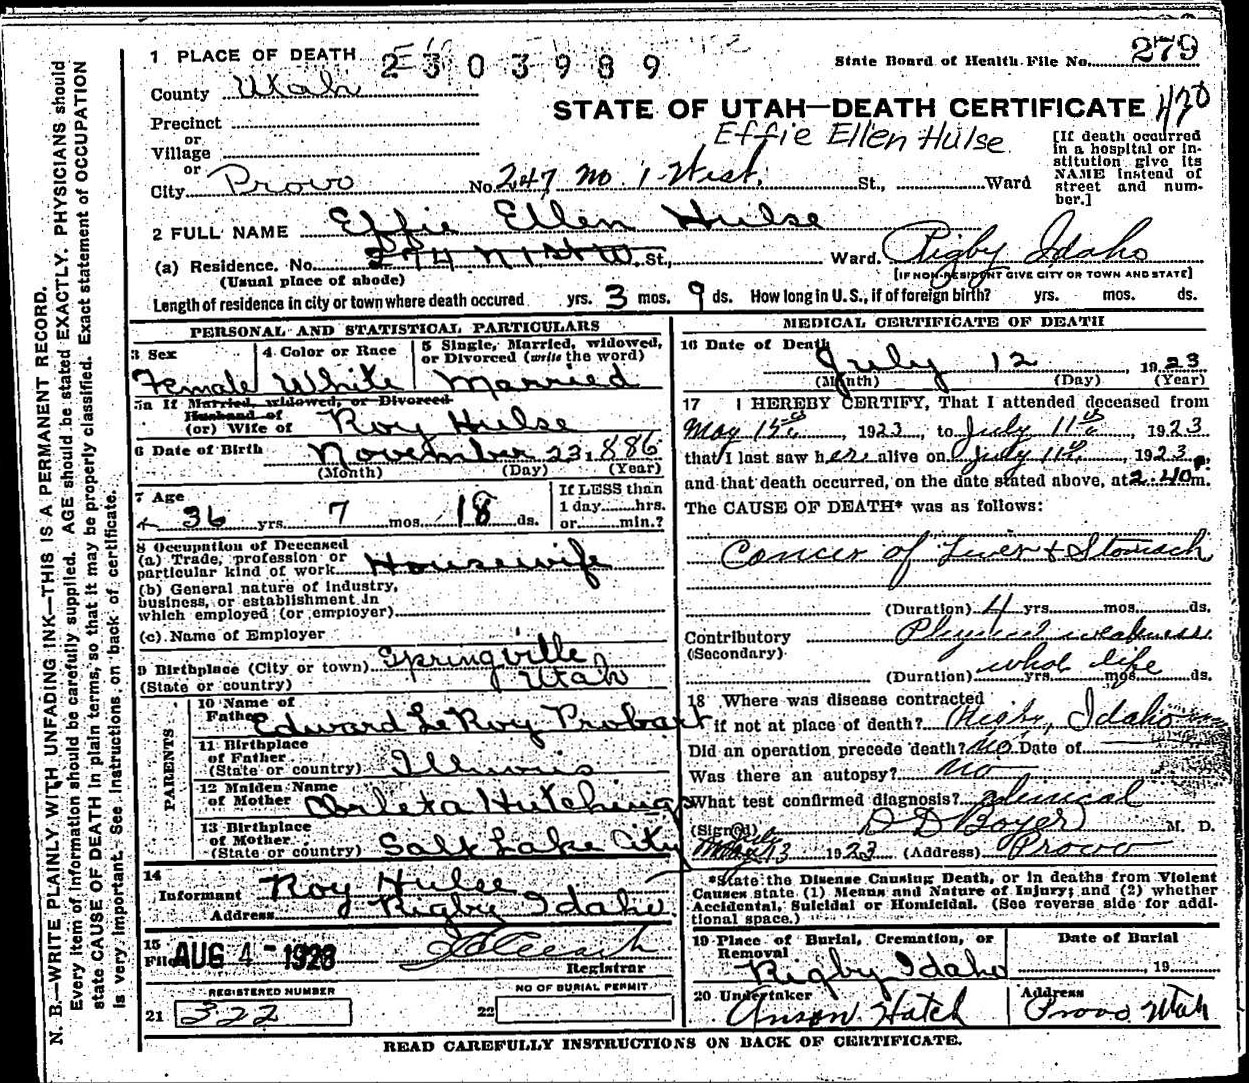 1 PLACE OF DEATH 2303989
State Board of Health File No. 279
County Utah
STATE OF UTAH—DEATH CERTIFICATE 420
Precinct
Effie Ellen Hulse
or
Village
or
City Provo No. 247 No. 1 West. St., Ward
[If death occurred in a hospital or institution give its NAME instead of street and number.]
2 FULL NAME Effie Ellen Hulse
(a) Residence. No. 274 N 1st W. St., Ward. Rigby Idaho
(Usual place of abode) [IF NON-RESIDENT GIVE CITY OR TOWN AND STATE]
Length of residence in city or town where death occured yrs. 3 mos. 9 ds. How long in U.S., if of foreign birth? yrs. mos. ds.
PERSONAL AND STATISTICAL PARTICULARS
3 Sex 4 Color or Race 5 Single, Married, widowed,
or Divorced (write the word)
Female White Married
5a If Married, widowed, or Divorced
Husband of
(or) Wife of Roy Hulse
6 Date of Birth November 23 1886
(Month) (Day) (Year)
7 Age If LESS than
36 yrs. 7 mos. 18 ds. 1 day hrs.
or min.?
8 Occupation of Deceased
(a) Trade, profession or
particular kind of work Housewife
(b) General nature of industry,
business, or establishment in
which employed (or employer)
(c) Name of Employer
9 Birthplace (City or town) Springville
(State or country) Utah
PARENTS
10 Name of
Father Edward LeRoy Probart
11 Birthplace
of Father
(State or country) Illinois
12 Maiden Name
of Mother Orleta Hutchings
13 Birthplace
of Mother
(State or country) Salt Lake City
14
Informant Roy Hulse
Address Rigby Idaho
15
Filed AUG 4 - 1923
Registrar
REGISTERED NUMBER NO OF BURIAL PERMIT
21 322 22
MEDICAL CERTIFICATE OF DEATH
16 Date of Death
July 12, 1923
(Month) (Day) (Year)
17 I HEREBY CERTIFY, That I attended deceased from
May 15th, 1923, to July 11th, 1923
that I last saw her alive on July 11th, 1923,
and that death occurred, on the date stated above, at 2:40 P.m.
The CAUSE OF DEATH* was as follows:
Cancer of Liver & Stomach
(Duration) 4 yrs. mos. ds.
Contributory Physical weakness
(Secondary)
whol life
(Duration) yrs. mos. ds.
18 Where was disease contracted
if not at place of death? Rigby, Idaho
Did an operation precede death? No Date of
Was there an autopsy? No
What test confirmed diagnosis? Clinical
(Signed) D D Boyer M. D.
July
May 13 1923 (Address) Provo
*State the Disease Causing Death, or in deaths from Violent
Causes state (1) Means and Nature of Injury; and (2) whether
Accidental, Suicidal or Homicidal. (See reverse side for additional space.)
19 Place of Burial, Cremation, or Date of Burial
Removal
Rigby Idaho , 19
20 Undertaker Address
Anson Hatch Provo Utah
READ CAREFULLY INSTRUCTIONS ON BACK OF CERTIFICATE.
N. B.—WRITE PLAINLY WITH UNFADING INK—THIS IS A PERMANENT RECORD.
Every item of information should be carefully supplied. AGE should be stated EXACTLY. PHYSICIANS should
state CAUSE OF DEATH in plain terms, so that it may be properly classified. Exact statement of OCCUPATION
is very important. See instructions on back of certificate.